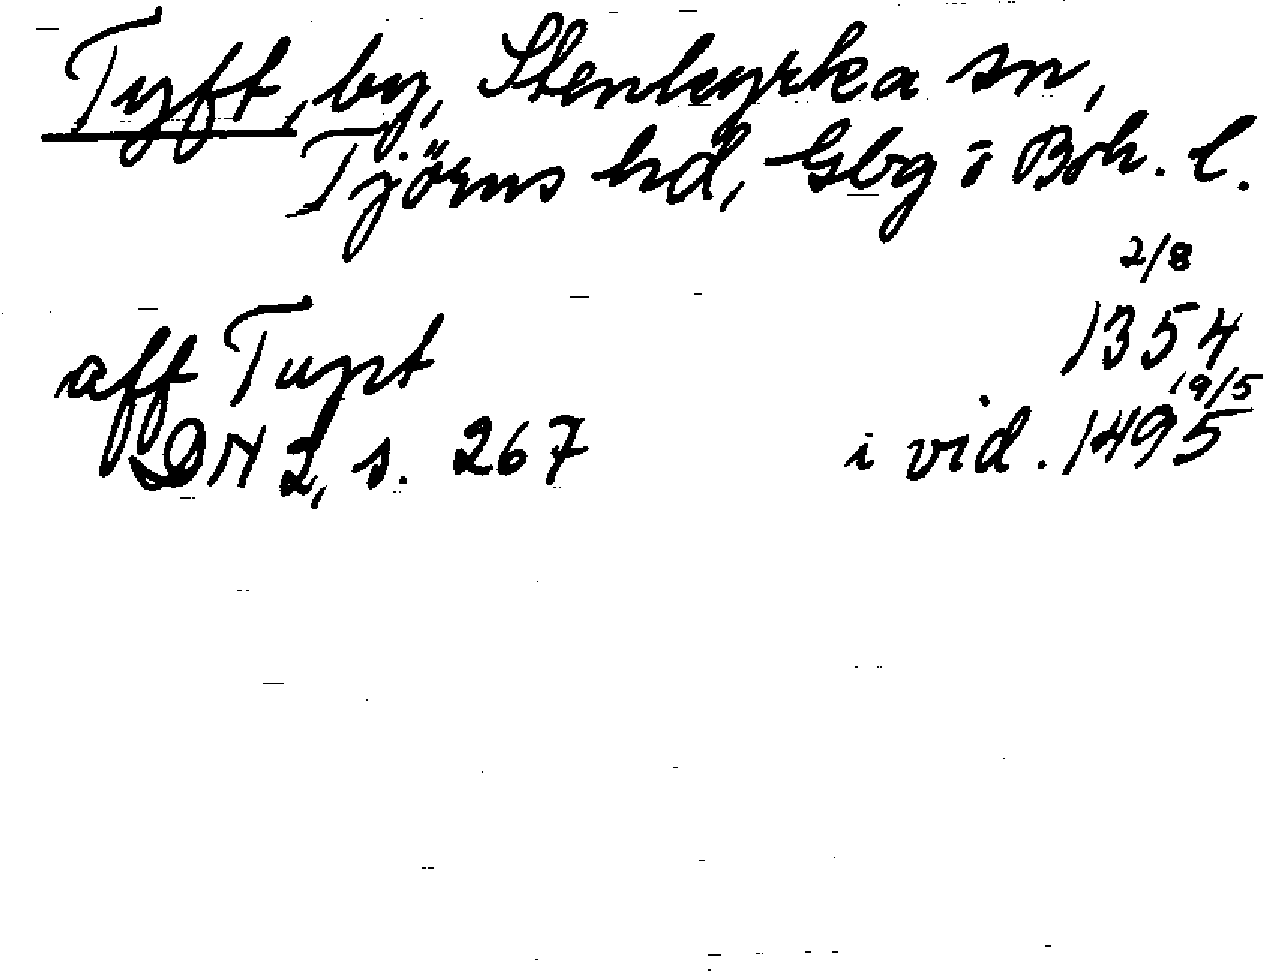 Tyft, by, Stenkyrka sn,
Tjörns hd, Gbg o Boh. l.
2/8
aff Tupt 1354
19/5
DN 2, s. 267 i vid. 1495